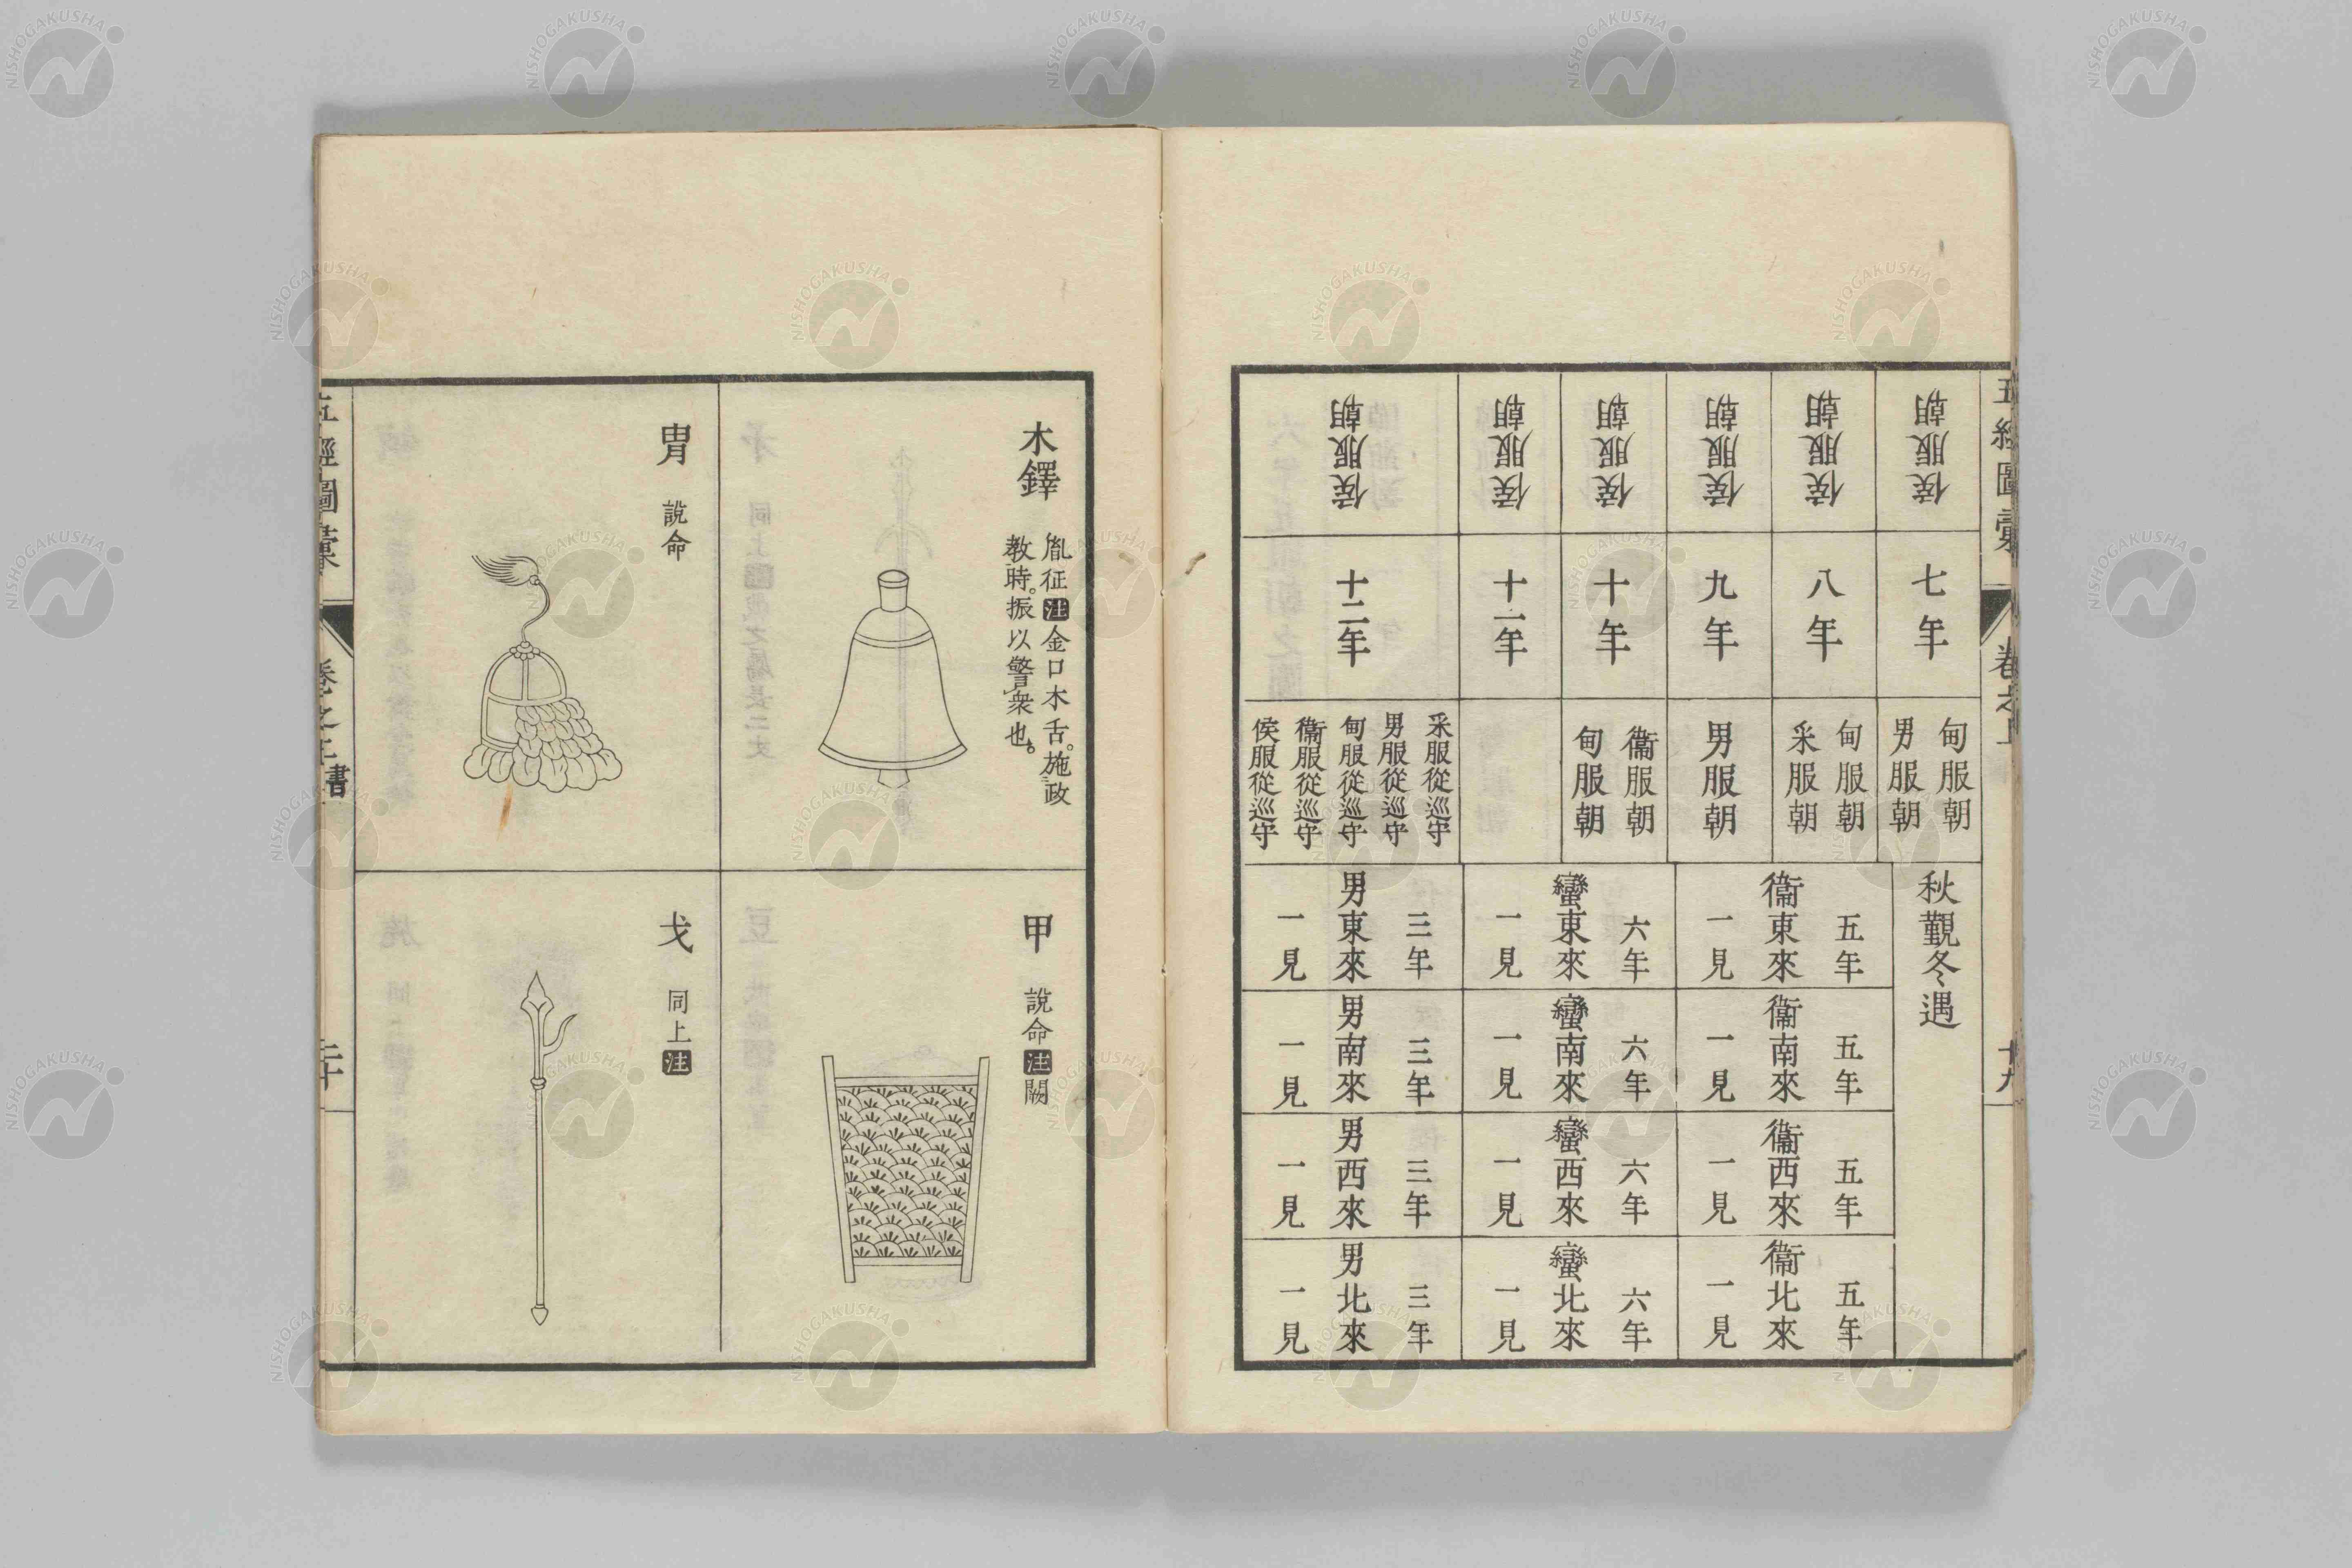 五經圖彙
卷之上
十九
侯服朝
侯服朝
侯服朝
侯服朝
侯服朝
侯服朝
七年
八年
九年
十年
十一年
十二年
甸服朝
男服朝
甸服朝
采服朝
男服朝
衞服朝
甸服朝
采服從巡守
男服從巡守
甸服從巡守
衞服從巡守
侯服從巡守
秋覲冬遇
五年
衞東來
一見
六年
蠻東來
一見
三年
男東來
一見
五年
衞南來
一見
六年
蠻南來
一見
三年
男南來
一見
五年
衞西來
一見
六年
蠻西來
一見
三年
男西來
一見
五年
衞北來
一見
六年
蠻北來
一見
三年
男北來
一見
木鐸
胤征注金口木舌。施政
教時。振以警衆也。
冑 說命
甲 說命注闕
戈 同上注
五經圖彙
卷之上書
二十
NISHOGAKUSHA